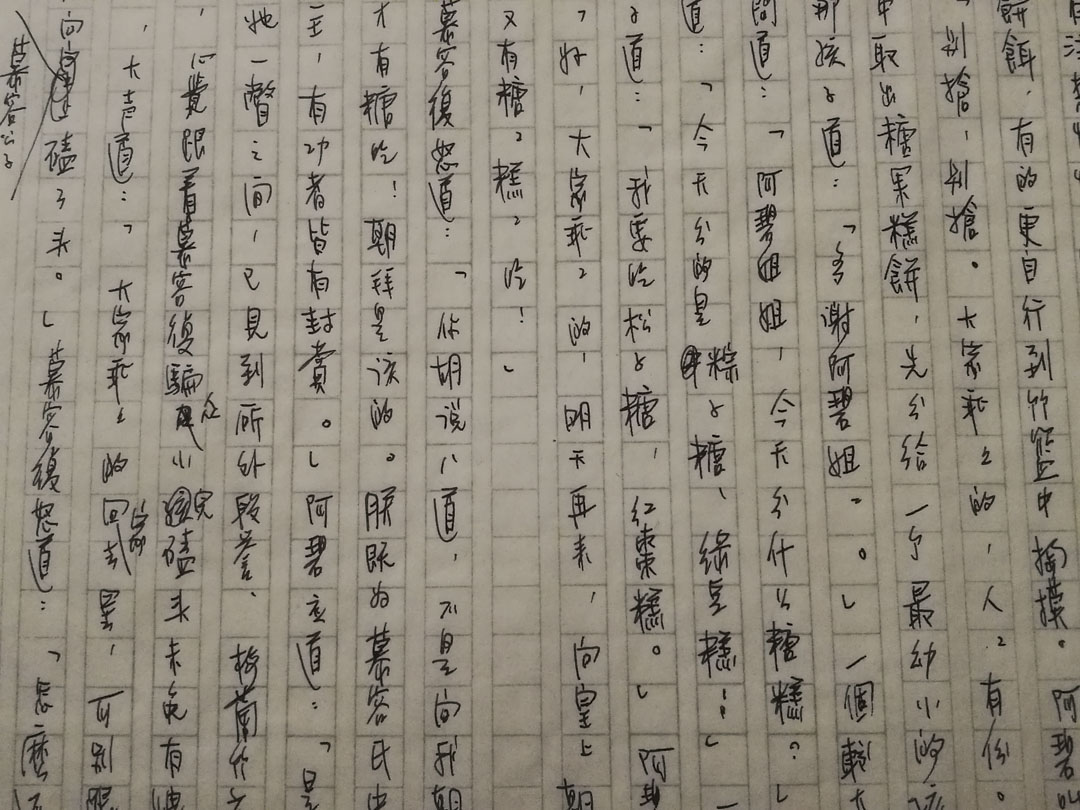 餅餌，有的更自行到竹籃中掏摸。阿碧
「别搶，别搶。大家乖乖的，人人有份。
中取出糖菓糕餅，先分給一个最幼小的孩
那孩子道：「多謝阿碧姐姐。」一個較大
問道：「阿碧姐姐，今天分什么糖糕？」
道：「今天分的是粽子糖、綠豆糕！」一
子道：「我要吃松子糖，紅棗糕。」阿碧
「好，大家乖乖的，明天再来，向皇上朝
又有糖糖糕糕吃！」
慕容復怒道：「你胡説八道，不是向我朝
才有糖吃！朝拜是该的。朕既为慕容氏
主，有功者皆有封賞。」阿碧应道：「是
她一瞥之间，已見到
心覺跟着慕容復騙众小孩兒磕头未免有
，大声道：「大家乖乖的回家去罢，可别跟
慕容公子磕了头。」慕容復怒道：「怎麽